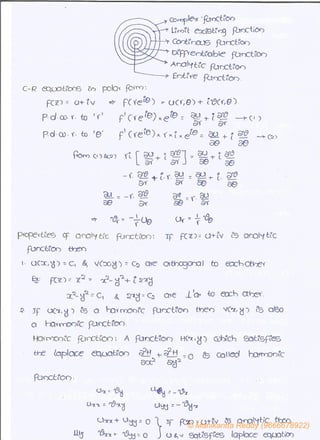 complex function
Limit existing function
Continuous function
Differentiable function
Analytic function
Entire function.
C-R equations in polar form:
f(z) = u+iv ⇒ f(re^iθ) = u(r,θ) + iv(r,θ)
P.d w.r. to 'r' f'(re^iθ) × e^iθ = ∂u/∂r + i ∂v/∂r → (1)
P.d w.r. to 'θ' f'(re^iθ) × r × i × e^iθ = ∂u/∂θ + i ∂v/∂θ → (2)
from (1) & (2) ri [∂u/∂r + i ∂v/∂r] = ∂u/∂θ + i ∂v/∂θ
-r. ∂v/∂r + i.r. ∂u/∂r = ∂u/∂θ + i. ∂v/∂θ
∂u/∂θ = -r. ∂v/∂r ∂v/∂θ = r. ∂u/∂r
⇒ v_r = -1/r u_θ u_r = 1/r v_θ
properties of analytic function: If f(z) = u+iv is analytic
function then
1. u(x,y) = c₁ & v(x,y) = c₂ are orthogonal to each other
Eg: f(z) = z² = x²-y²+i2xy
x²-y² = c₁ & 2xy = c₂ are ⊥ar to each other.
2. If u(x,y) is a harmonic function then v(x,y) is also
a harmonic function
Harmonic function: A function H(x,y) which satisfies
the laplace equation ∂²H/∂x² + ∂²H/∂y² = 0 is called harmonic
function.
u_x = v_y u_y = -v_x
u_xx = v_xy u_yy = -v_yx
u_xx + u_yy = 0 } If f(z) = u+iv is analytic then
lly v_xx + v_yy = 0 } u & v satisfies laplace equation
© Manikanta Reddy (9666678922)